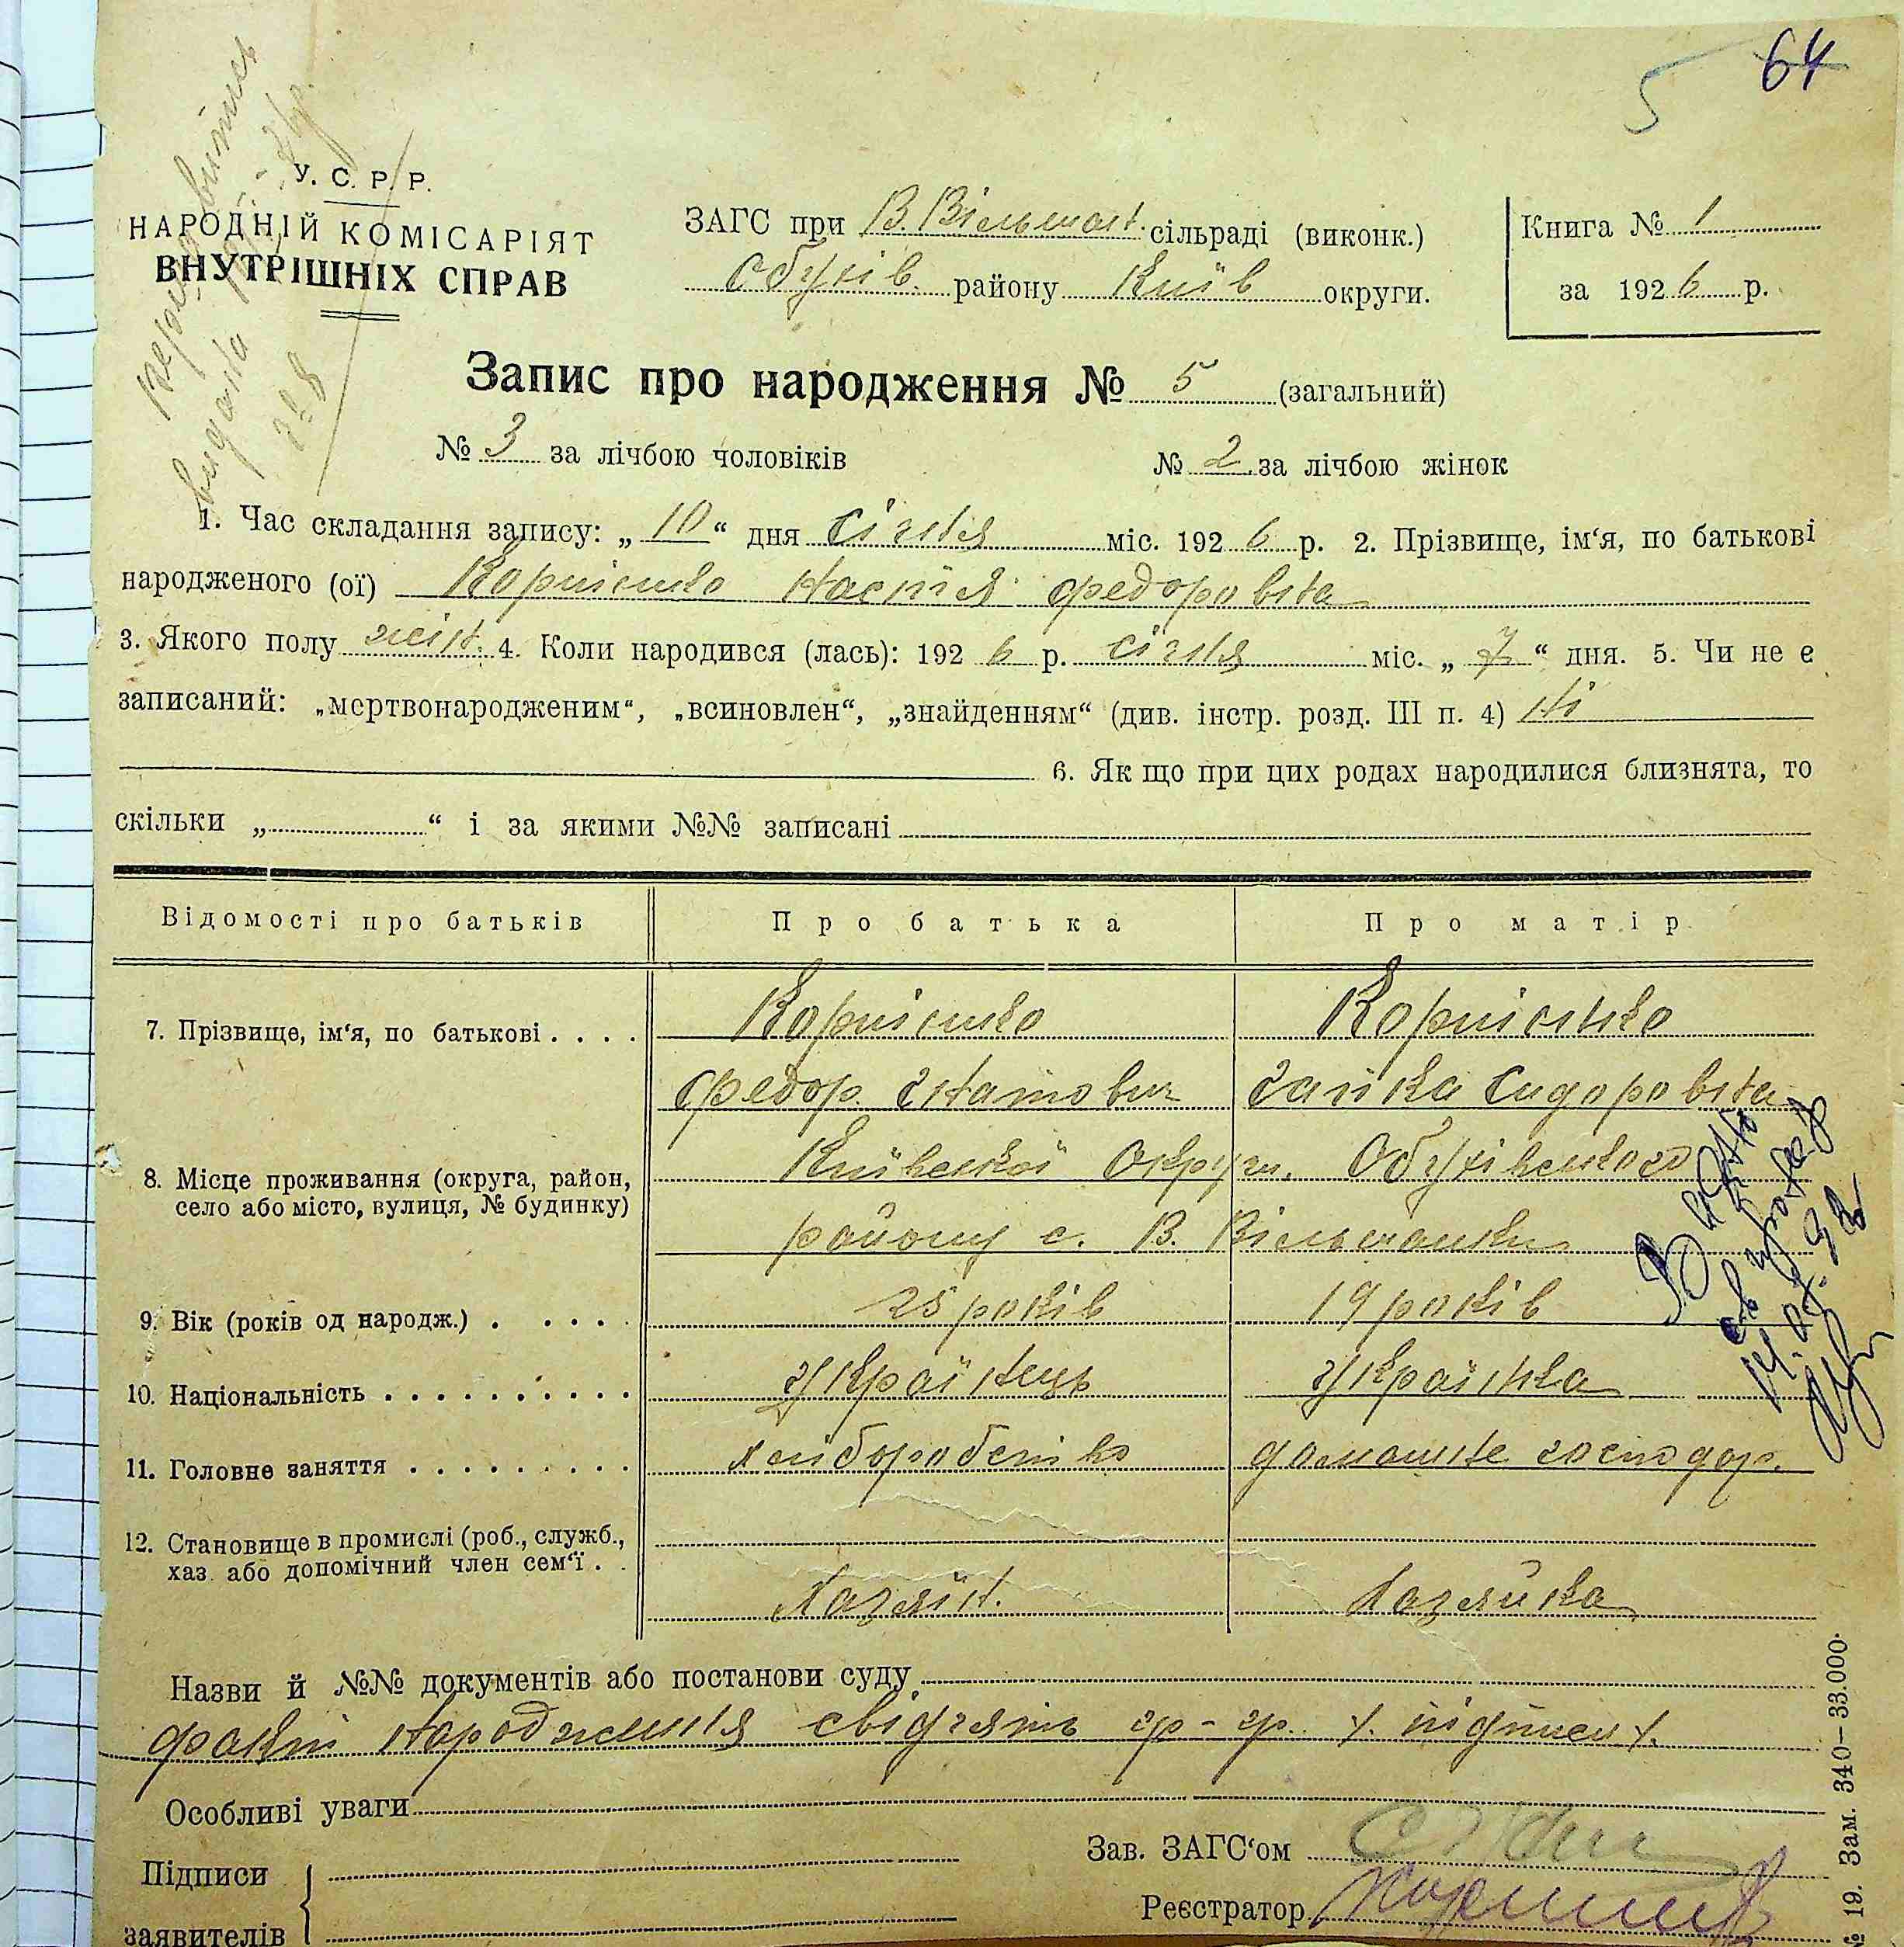 5 64
У. С. Р. Р.
НАРОДНІЙ КОМІСАРІЯТ
ВНУТРІШНІХ СПРАВ
ЗАГС при В. Вільшан. сільраді (виконк.)
Обухів. району Київ округи.
Книга № 1
за 1926 р.
Запис про народження № 5 (загальний)
№ 3 за лічбою чоловіків № 2 за лічбою жінок
1. Час складання запису: „10“ дня Січня міс. 1926 р. 2. Прізвище, ім‘я, по батькові
народженого (ої) Корнієнко Настя Федоровна
3. Якого полу жін. 4. Коли народився (лась): 1926 р. Січня міс. „7“ дня. 5. Чи не є
записаний: „мертвонародженим“, „всиновлен“, „знайденням“ (див. інстр. розд. III п. 4) Ні
6. Як що при цих родах народилися близнята, то
скільки „ “ і за якими №№ записані
Відомості про батьків Про батька Про матір
7. Прізвище, ім‘я, по батькові . . . . Корнієнко Корнієнко
Федор Гнатович Ганка Сидоровна
8. Місце проживання (округа, район, Київської Округи, Обухівського
село або місто, вулиця, № будинку) району с. В. Вільшанки
9. Вік (років од народж.) . . . . . 25 років 19 років
10. Національність . . . . . . . . . . Українець Українка
11. Головне заняття . . . . . . . . . хліборобство домашнє господар.
12. Становище в промислі (роб., служб.,
хаз. або допомічний член сем‘ї . . Хазяїн. Хазяйка
Назви й №№ документів або постанови суду
факт народження свідчять гр-гр.
Особливі уваги
Зав. ЗАГС‘ом
Підписи
заявителів
Реєстратор
№ 19. Зам. 340—33.000.